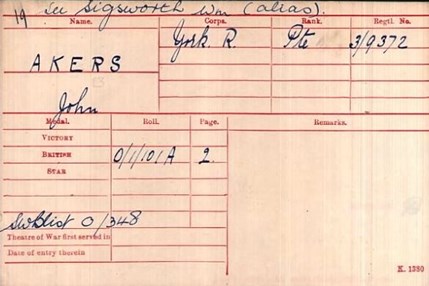 19 See Sigsworth Wm (alias).
Name. Corps. Rank. Regtl. No.
AKERS York. R. Pte 3/9372
John
Medal. Roll. Page. Remarks.
VICTORY
BRITISH 0/1/101A 2.
STAR
SWBlist 0/348
Theatre of War first served in
Date of entry therein
K. 1380